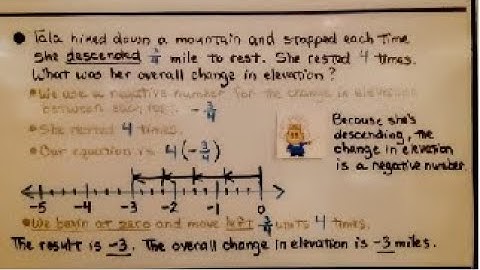 Tala hiked down a mountain and stopped each time
she descended 3/4 mile to rest. She rested 4 times.
What was her overall change in elevation?
We use a negative number for the change in elevation
between each rest. -3/4
She rested 4 times.
Our equation is 4(-3/4)
Because she's
descending, the
change in elevation
is a negative number.
-5 -4 -3 -2 -1 0
We begin at zero and move left 3/4 units 4 times.
The result is -3. The overall change in elevation is -3 miles.